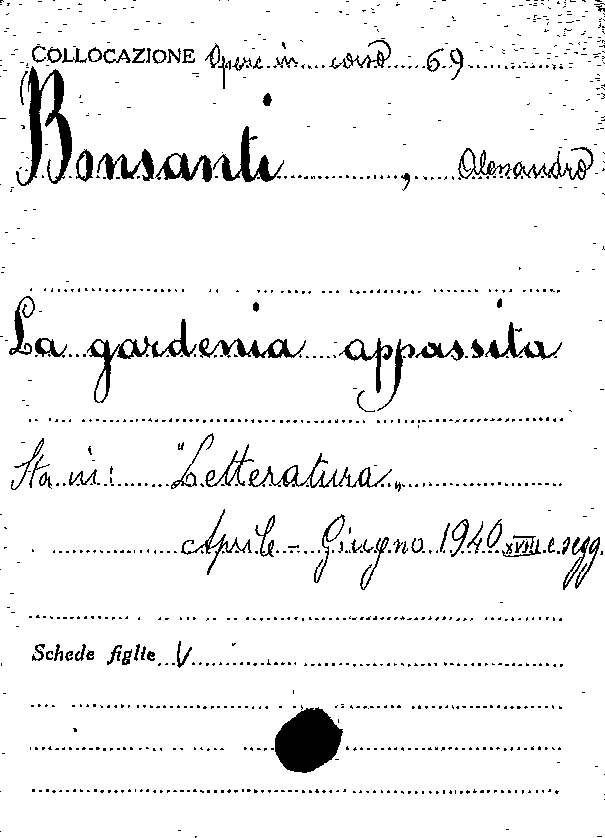 COLLOCAZIONE Opere in corso 69
Bonsanti, Alessandro
La gardenia appassita
Sta in: "Letteratura„
Aprile - Giugno 1940 XVIII e segg.
Schede figlie V